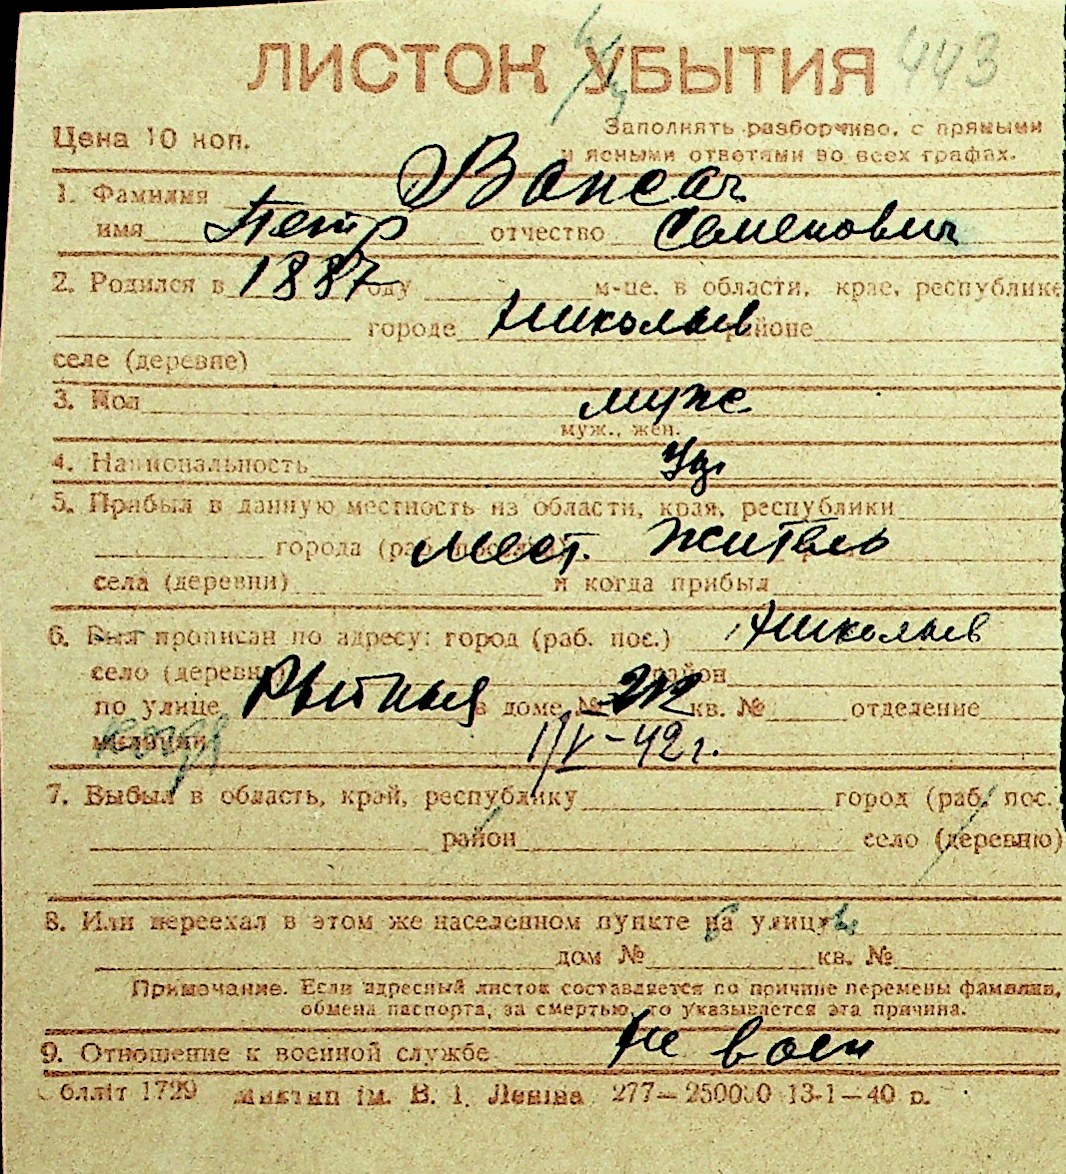 ЛИСТОК УБЫТИЯ 443
Цена 10 коп.
Заполнять разборчиво, с прямыми
и ясными ответами во всех графах.
1. Фамилия
имя Петр отчество Семенович
2. Родился в 1887 году м-це, в области, крае, республике
городе Николаев районе
селе (деревне)
3. Пол муж
муж., жен.
4. Национальность
5. Прибыл в данную местность из области, края, республики
города (раб. поселка) мест. житель
села (деревни) и когда прибыл
6. Был прописан по адресу: город (раб. пос.) Николаев
село (деревня) район
по улице Рытная в доме № кв. № отделение
милиции 1/V-42 г.
7. Выбыл в область, край, республику город (раб. пос.
район село (деревню)
8. Или переехал в этом же населенном пункте на улицу
дом № кв. №
Примечание. Если адресный листок составляется по причине перемены фамилии,
обмена паспорта, за смертью, то указывается эта причина.
9. Отношение к военной службе Не воен
облліт 1729 ім. В. І. Леніна 277—250000 13-1—40 р.